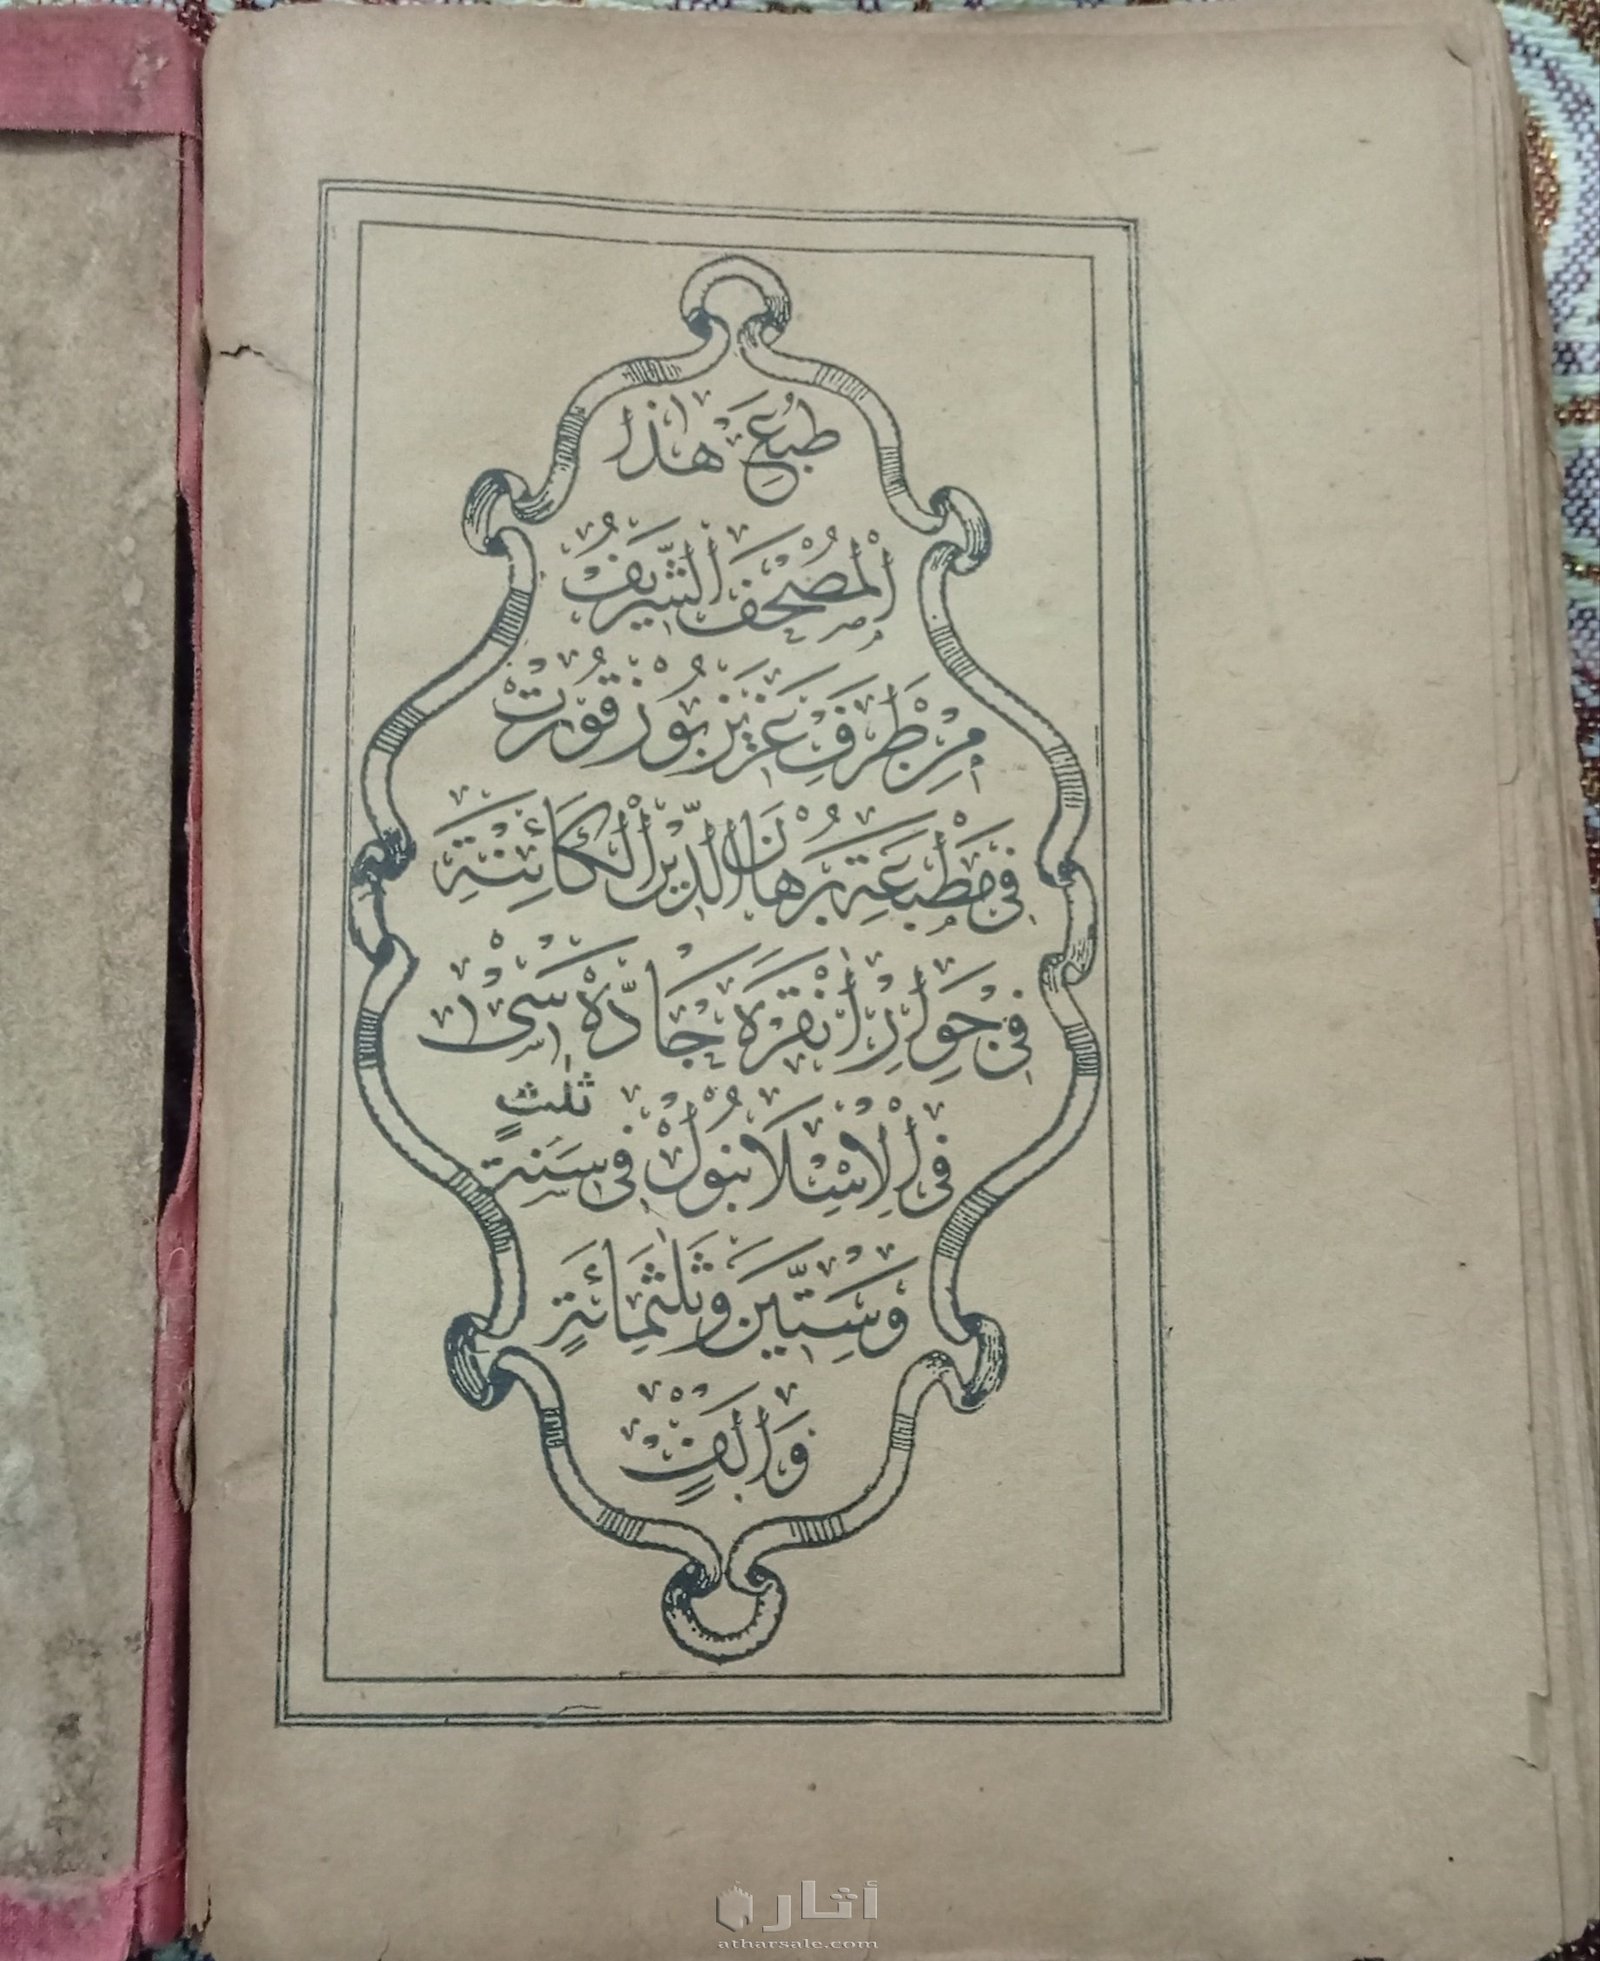 طُبِعَ هٰذَا
الْمُصْحَفُ الشَّرِيفُ
مِنْ طَرَفِ عَزِيزْ بُوزْقُورْتْ
فِى مَطْبَعَةِ بُرْهَانِ الدِّينِ الْكَائِنَةِ
فِى جِوَارِ اَنْقَرَهْ جَادَّهْ سِى
فِى الْاِسْلَانْبُولْ فِى سَنَةِ ثَلٰثٍ
وَسِتِّينَ وَثَلٰثِمِائَةٍ
وَاَلْفٍ
أثار
atharsale.com